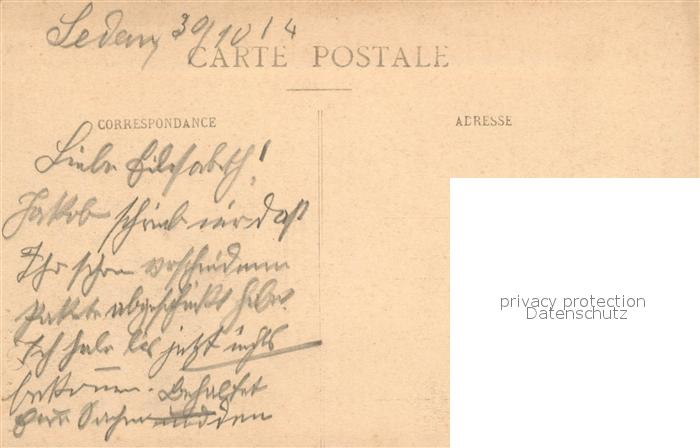 Sedan, 30/10 14
CARTE POSTALE
CORRESPONDANCE
ADRESSE
Liebe Elisabeth!
Jakob schrieb mir daß
Ihr schon verschiedene
Pakete abgeschickt habt.
Ich habe bis jetzt nichts
bekommen. Behaltet
Sachen und den
privacy protection
Datenschutz